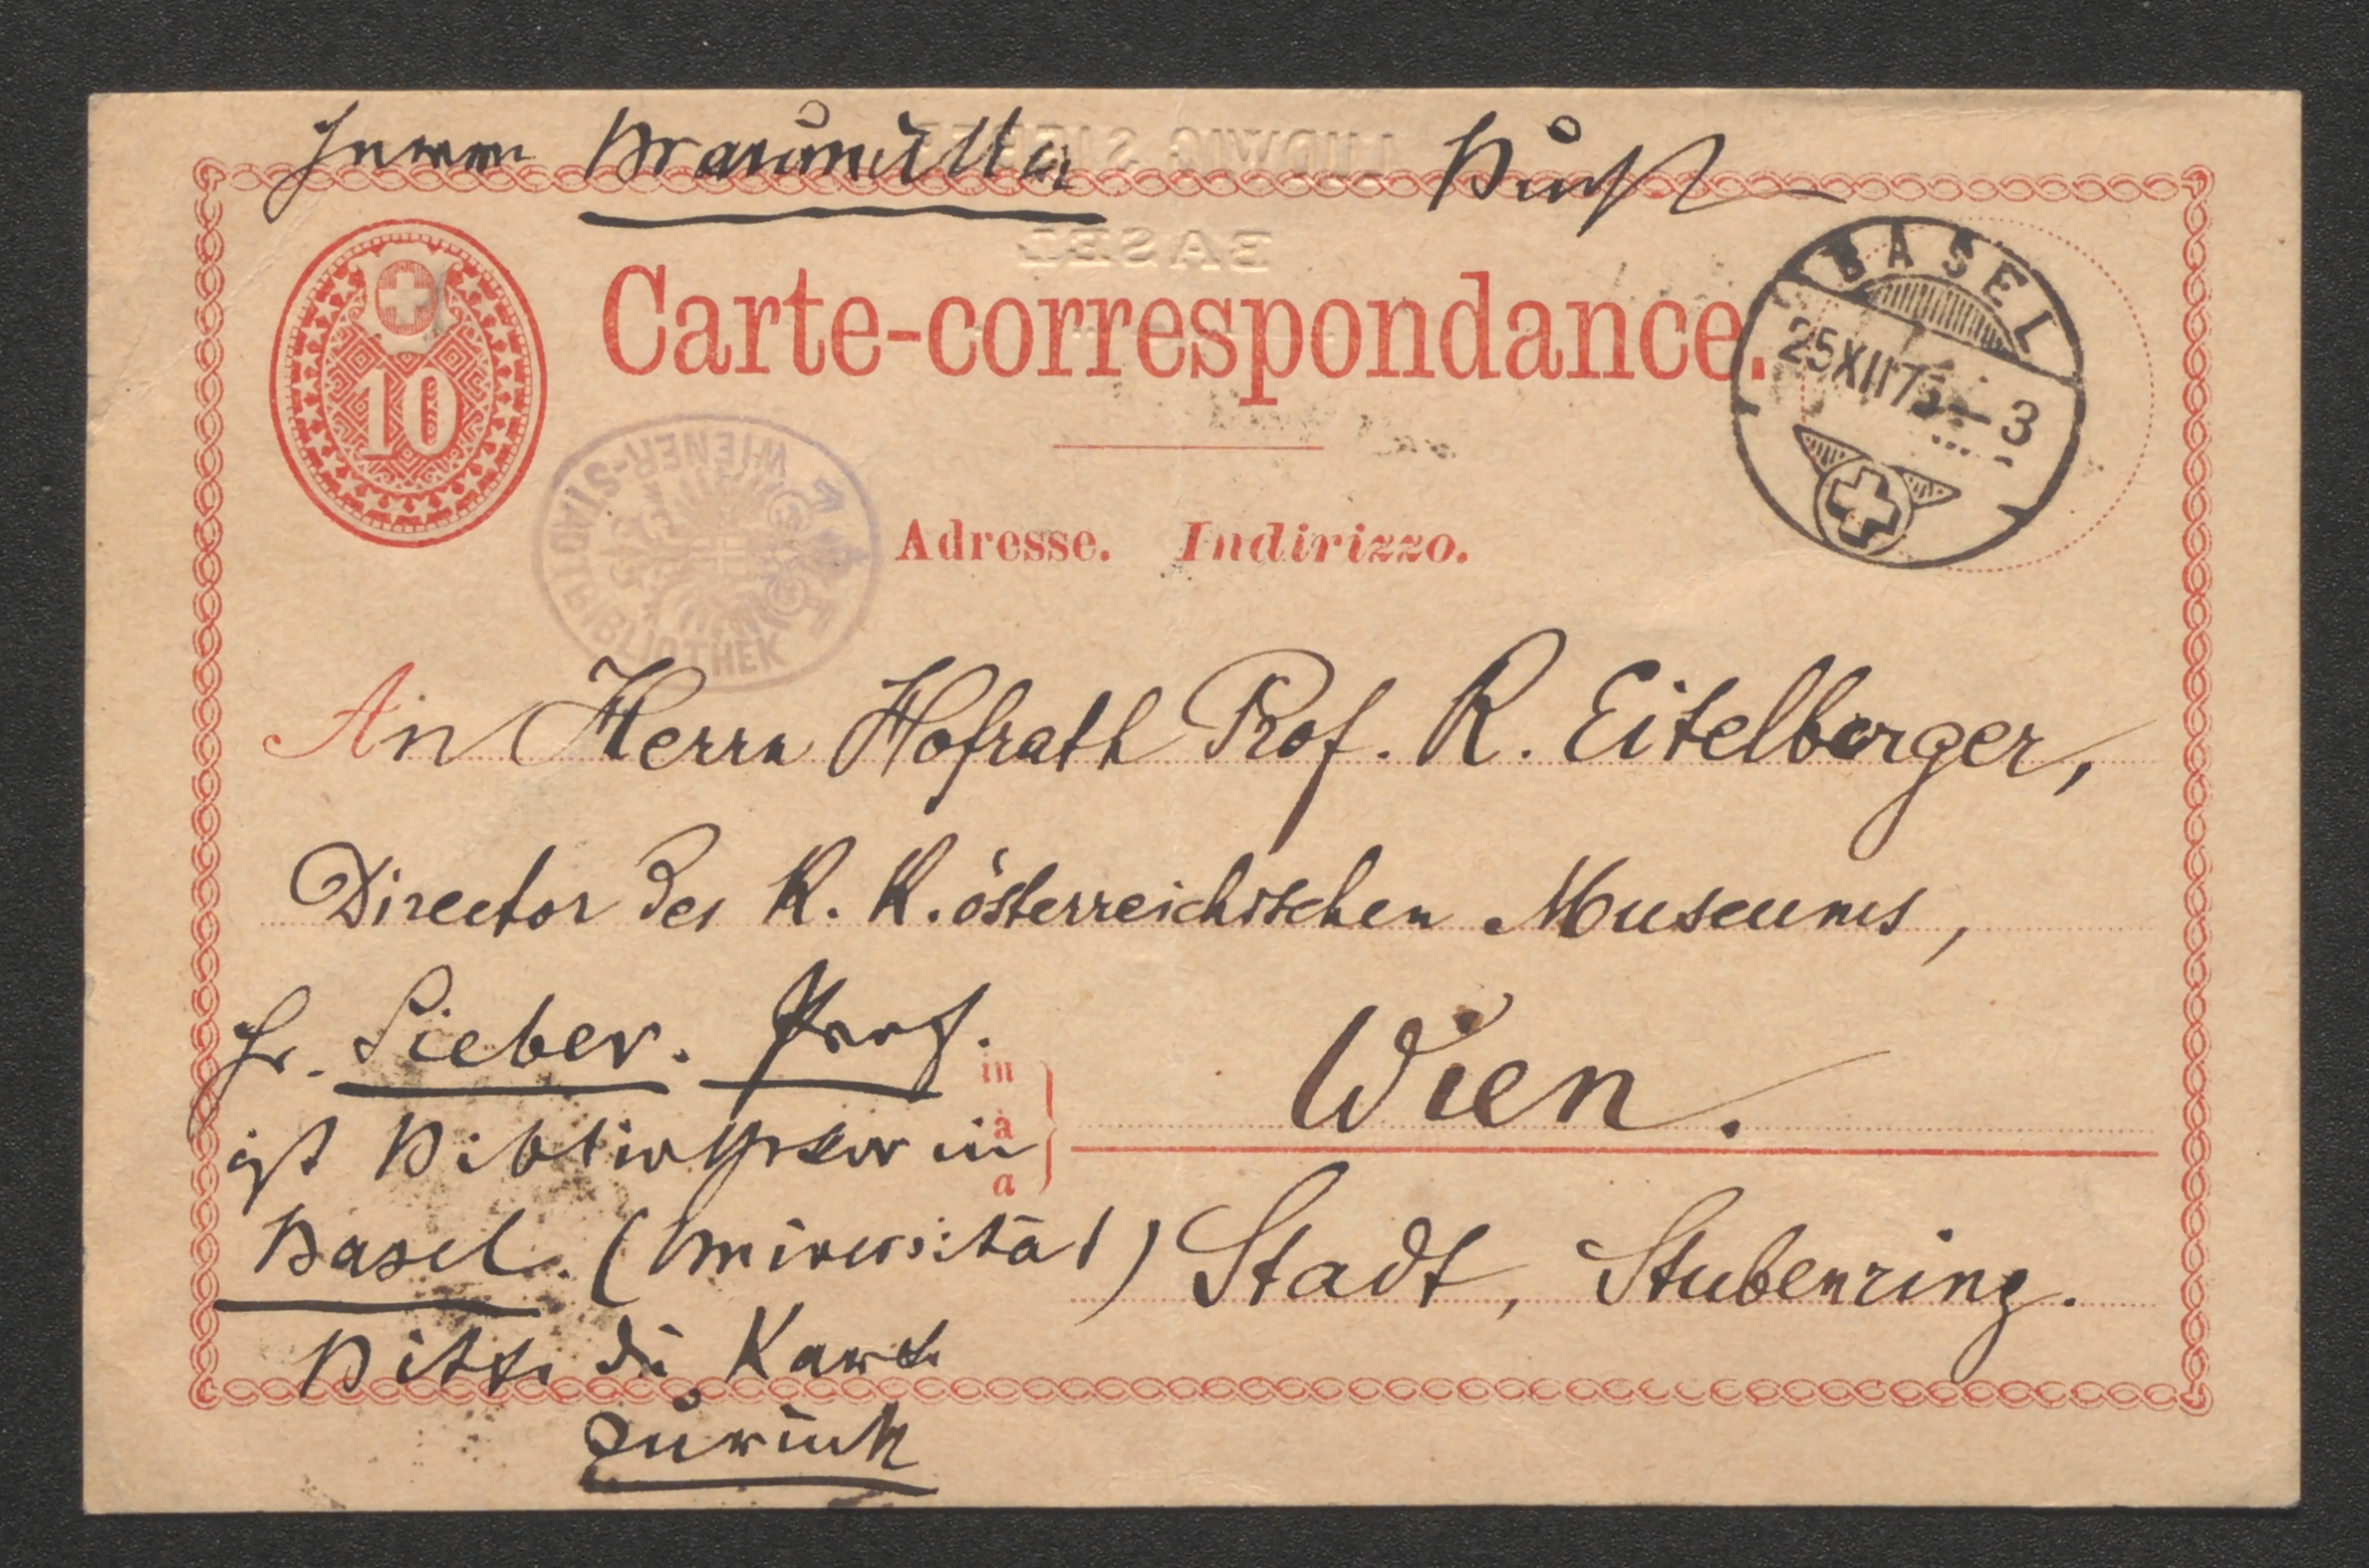 Herrn Braumüller
LUDWIG SIEBER
BASEL
10
Carte-correspondance.
BASEL
25 XII 75 – 3
WIENER-STADTBIBLIOTHEK
Adresse. Indirizzo.
An Herrn Hofrath Prof. R. Eitelberger,
Director des K. K. österreichischen Museums,
Hr. Sieber. Prof.
in
Wien.
ist Bibliothekar in
à
a
Basel. (Universität)
Stadt, Stubenring.
Bitte die Karte
zurück